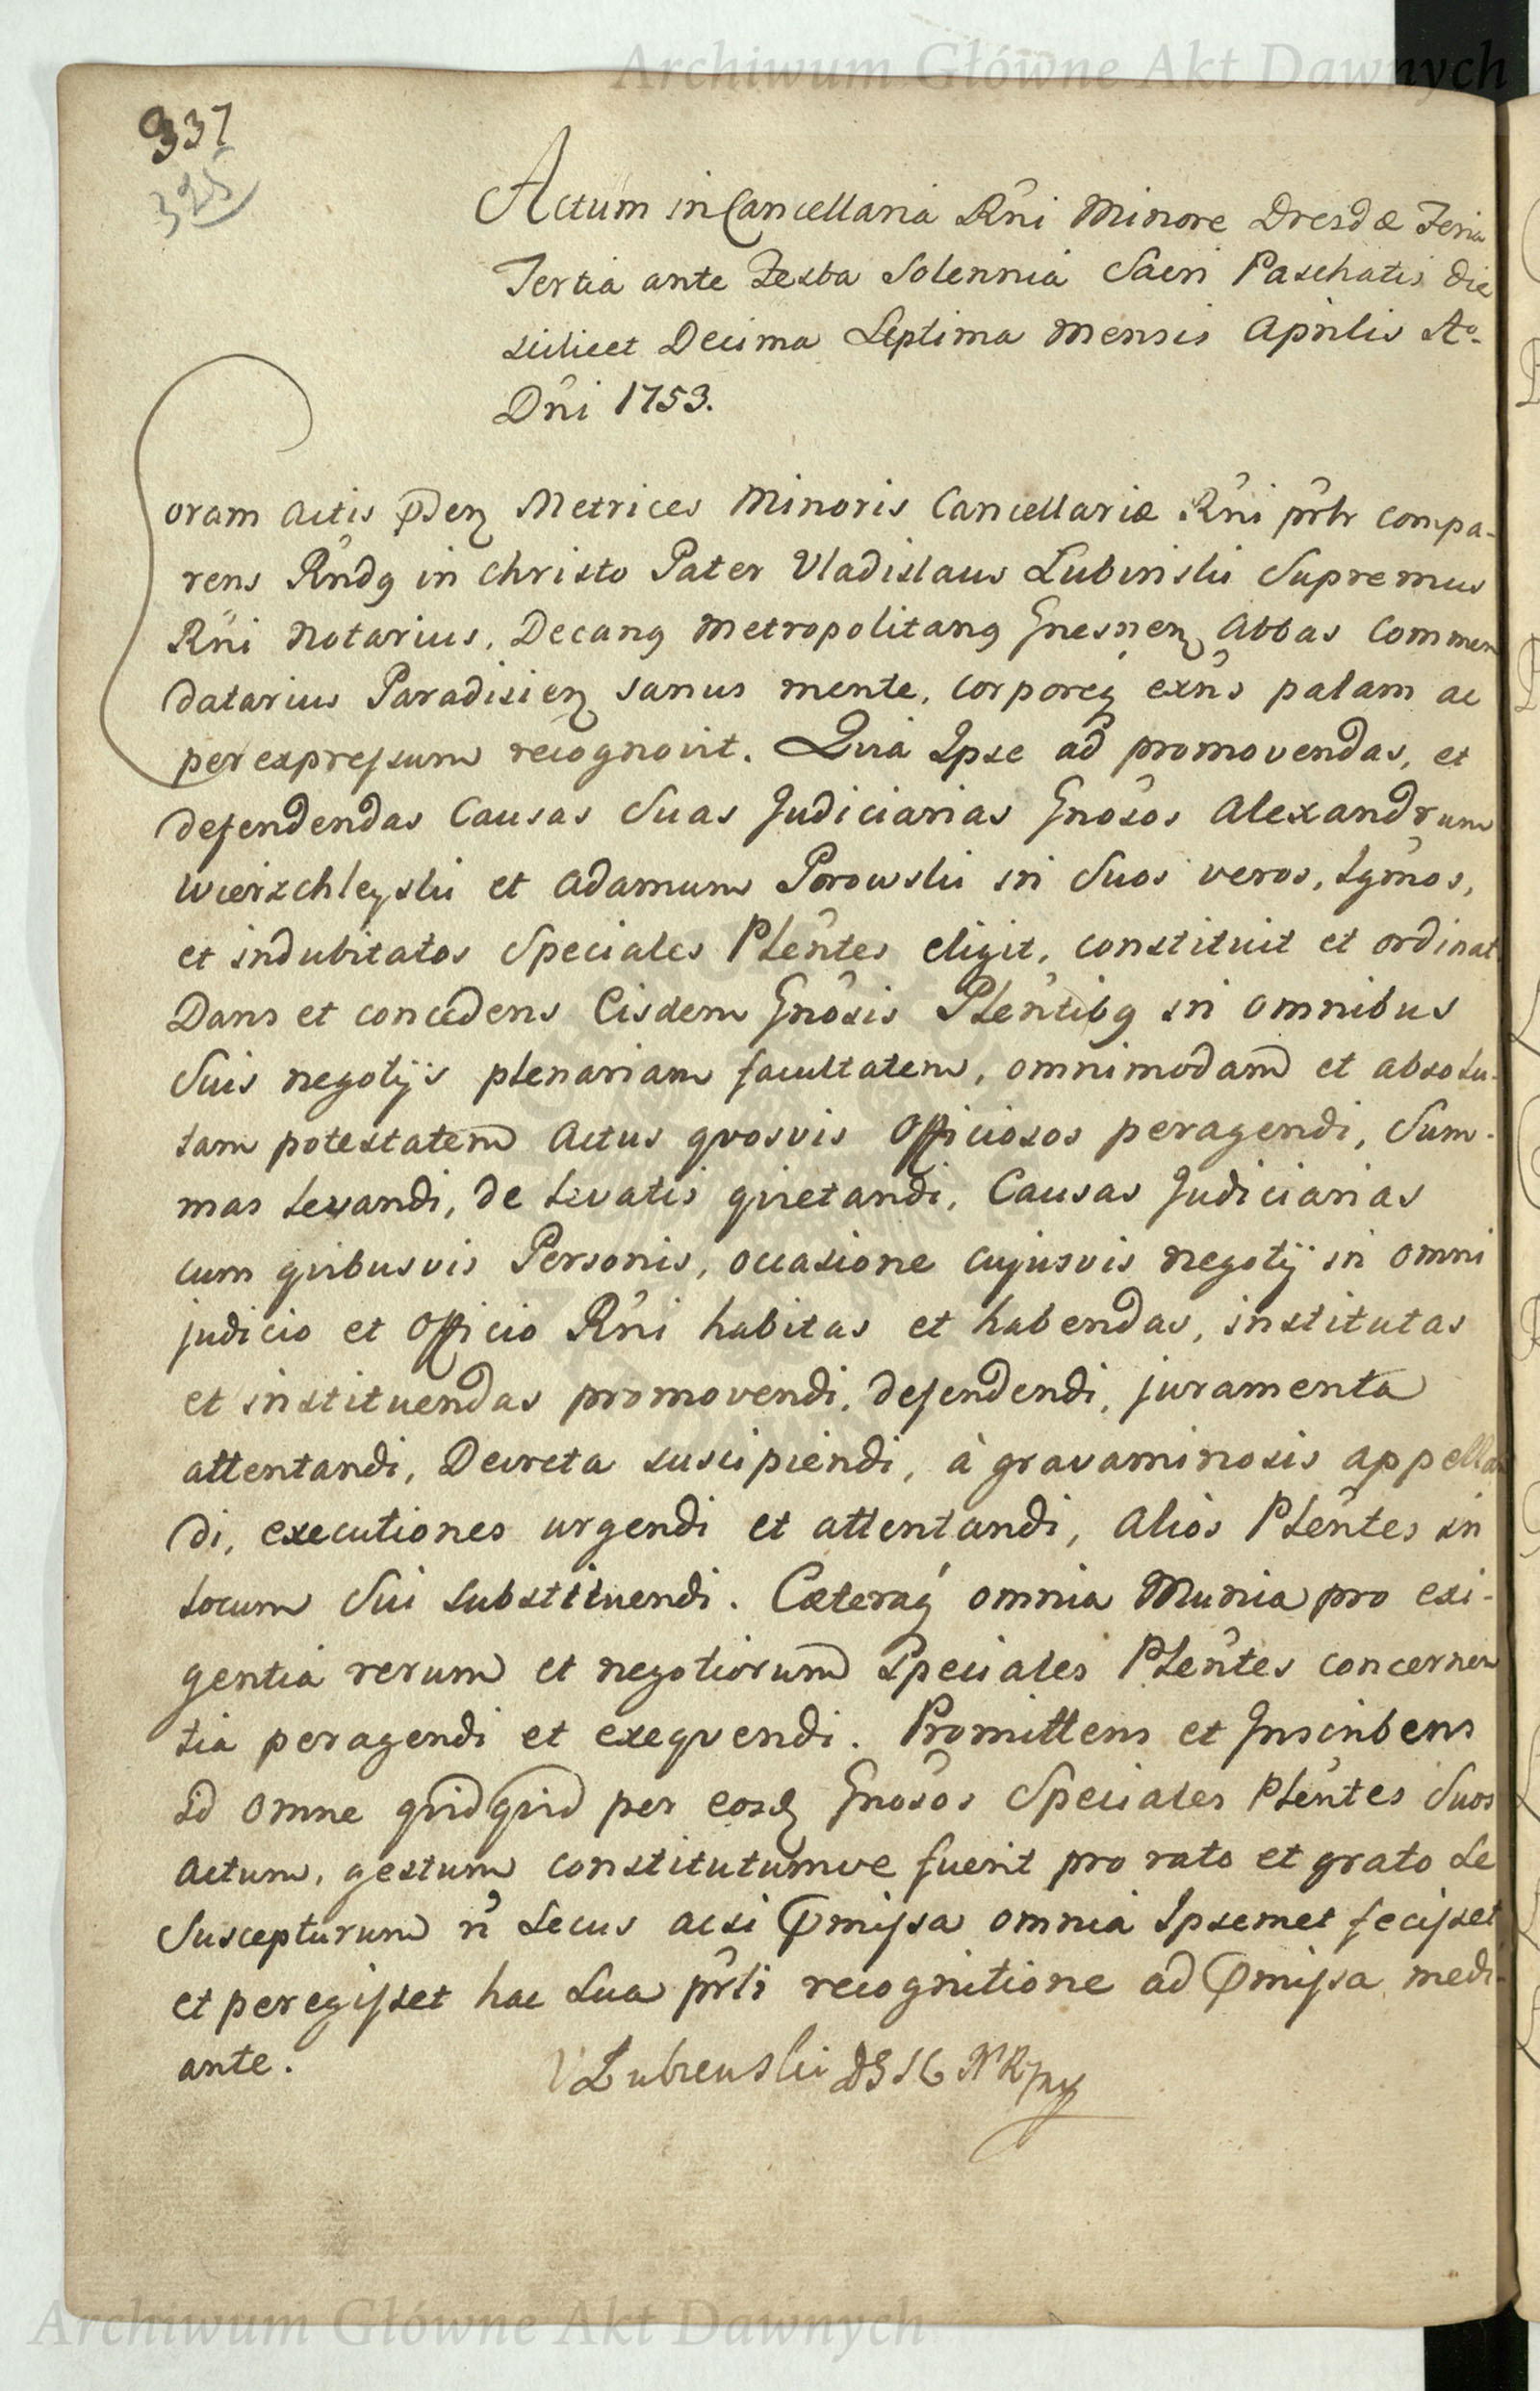 Archiwum Główne Akt Dawnych
337
325
Actum in Cancellaria Rñi Minore Dresdæ Feria
Tertia ante Festa Solennia Sacri Paschatis die
scilicet Decima Septima Mensis Aprilis Aº
Dñi 1753.
Coram Actis Metrices Minoris Cancellariæ Rñi compa-
rens Rndq in Christo Pater Vladislaus Lubinski Supremus
Rñi Notarius, Decanq Metropolitanq Gnesnen Abbas Commen
datarius Paradisien sanus mente, corporeq exñs palam ac
per expressum recognovit. Quia Ipse ad promovendas, et
defendendas Causas Suas Judiciarias Gnosos Alexandrum
Wierzchleyski et Adamum Porowski in Suos veros, lgmos,
et indubitatos Speciales Plentes eligit, constituit et ordinat
Dans et concedens Eisdem Gnosis Plentibq in omnibus
Suis negotijs plenariam facultatem, omnimodam et absolu-
tam potestatem Actus qvosvis Officiosos peragendi, Sum-
mas levandi, de levatis qvietandi, Causas Judiciarias
cum qvibusvis Personis, occasione cujusvis negotij in omni
judicio et Officio Rñi habitas et habendas, institutas
et instituendas promovendi, defendendi, juramenta
attentandi, Decreta suscipiendi, à gravaminosis appellan
di, executiones urgendi et attentandi, alios Plentes in
locum Sui substituendi. Cæteraq omnia Munia pro exi-
gentia rerum et negotiorum Speciales Plentes concernen
tia peragendi et exeqvendi. Promittens et Inscribens
Id omne qvidqvid per eosd Gnosos Speciales Plentes Suos
actum, gestum constitutumve fuerit pro rato et grato Se
Suscepturum ñ secus acsi Pmissa omnia Ipsemet fecisset
et peregisset hac Sua prti recognitione ad Pmissa medi-
ante.
V Lubienski
Archiwum Główne Akt Dawnych